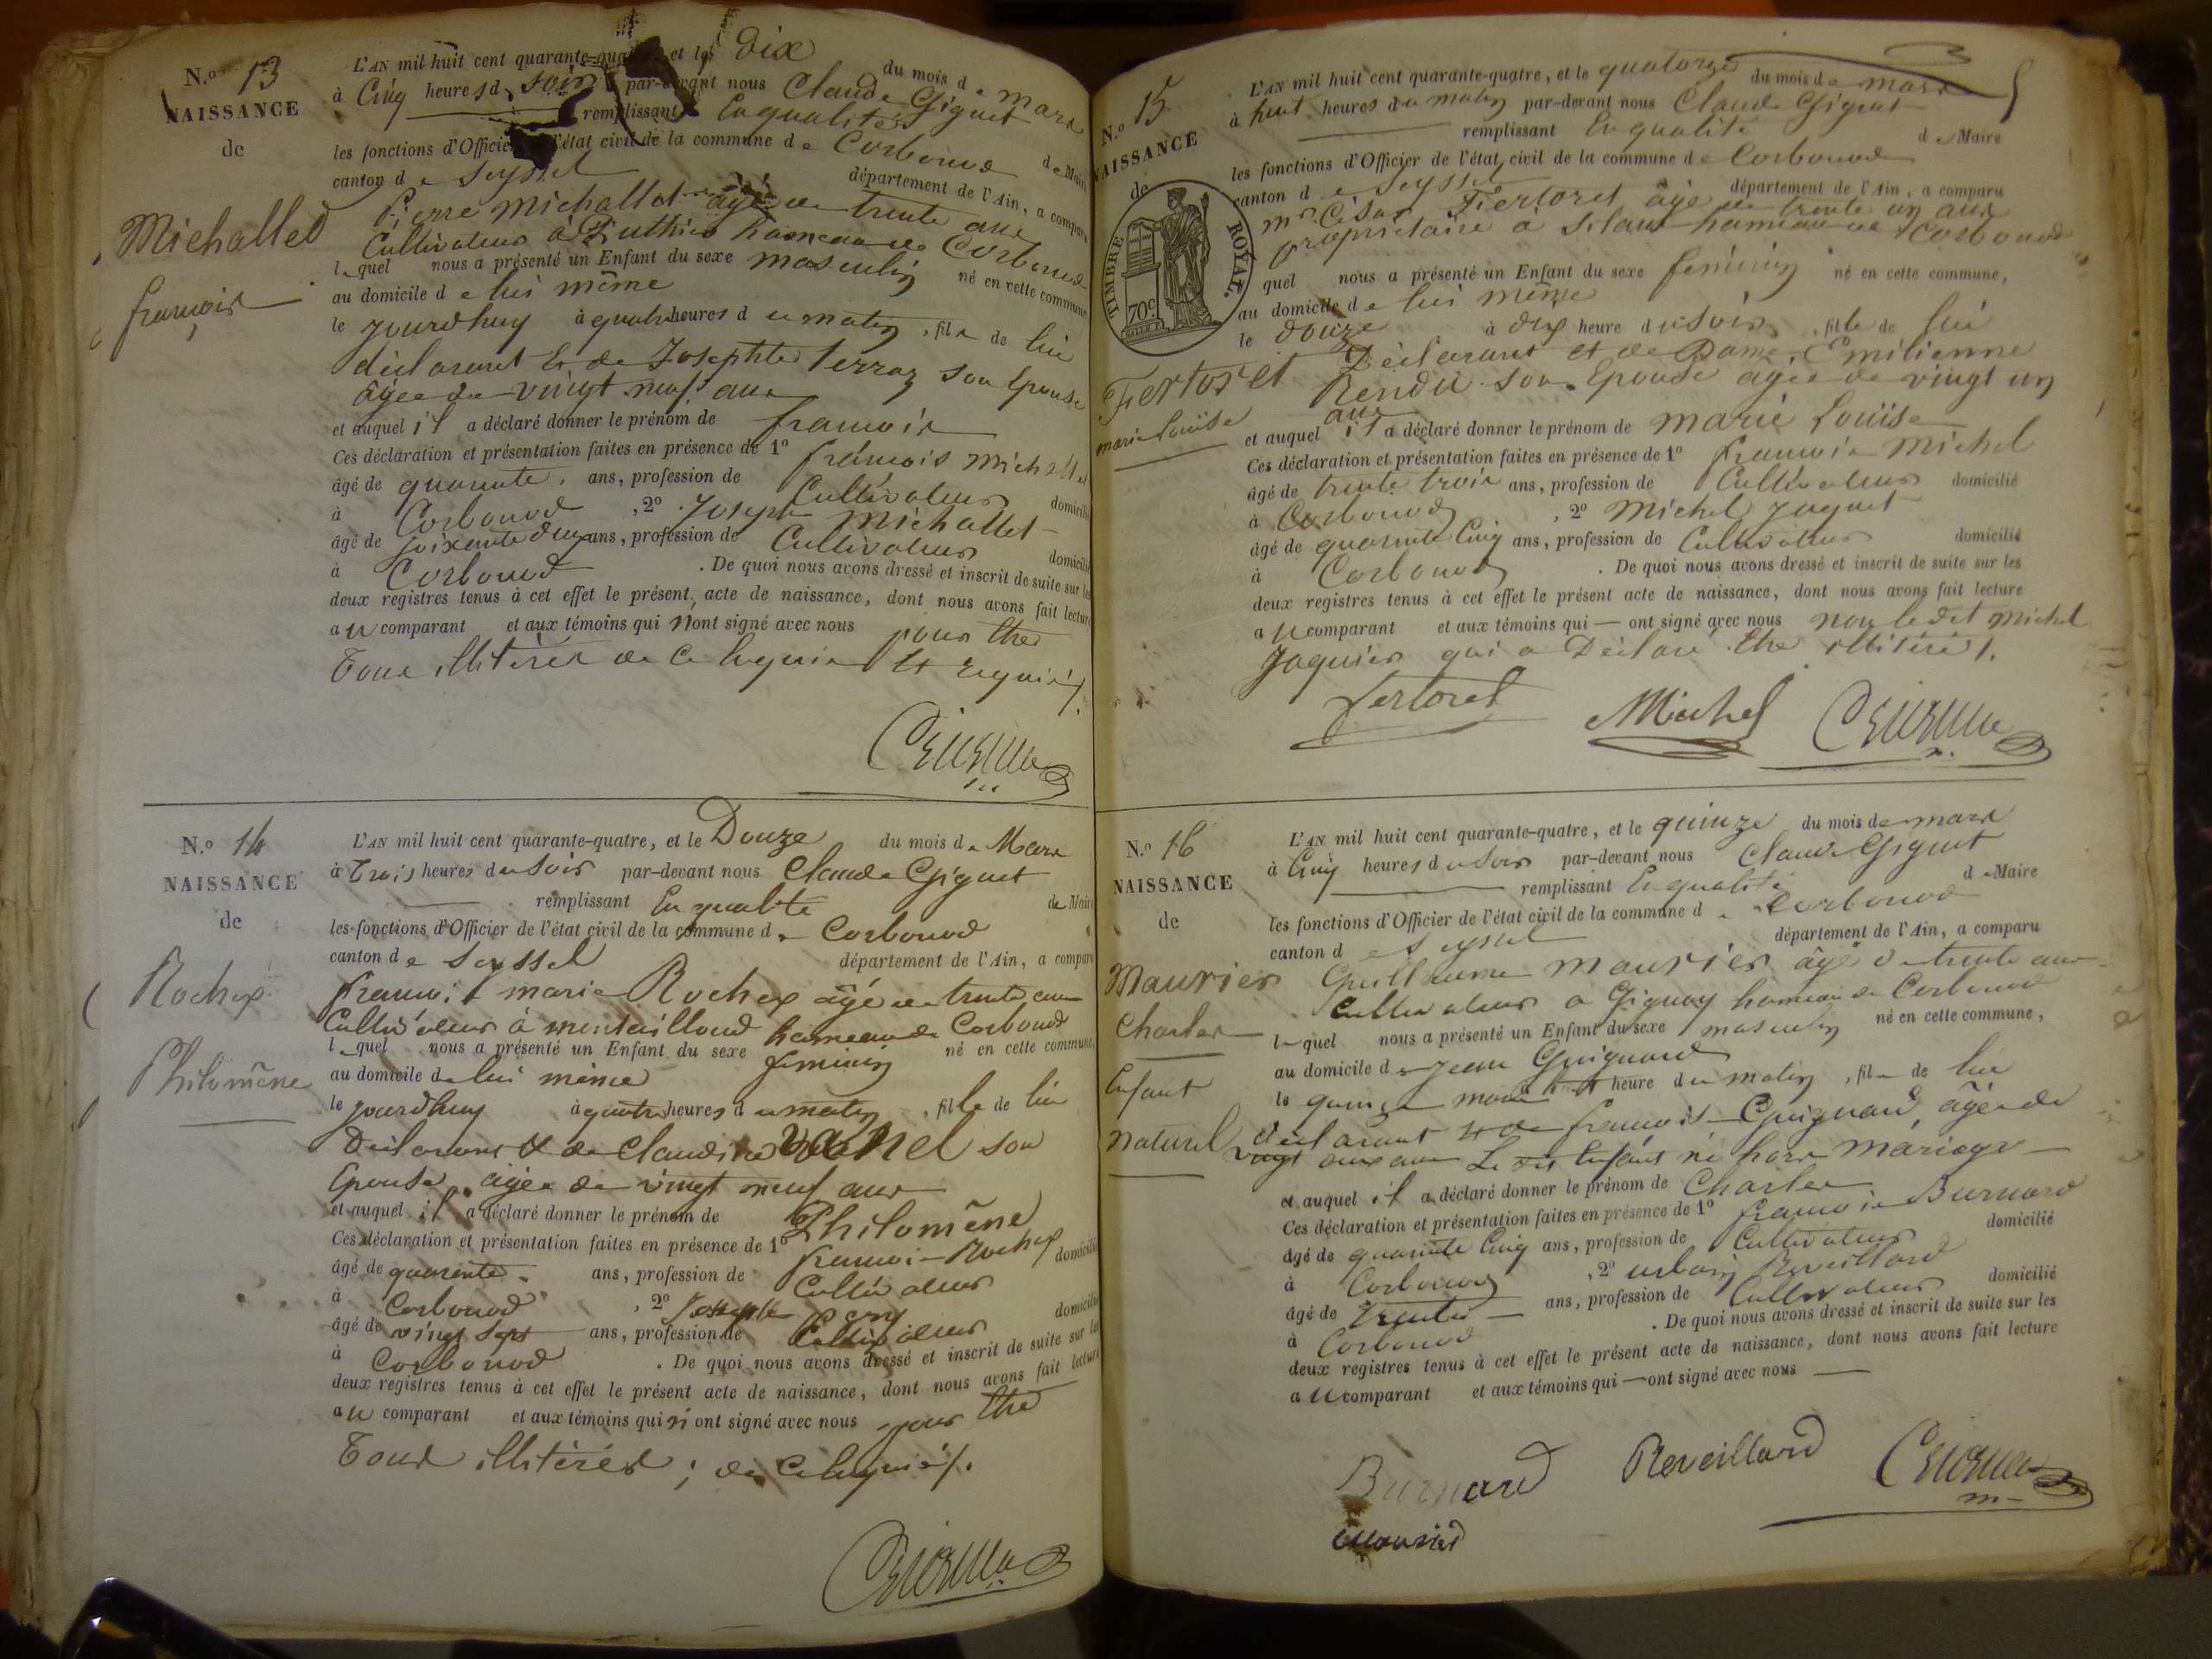 N.o 13
NAISSANCE
de
Michalled
françois
L'AN mil huit cent quarante-quatre, et le dix du mois de mars
à Cinq heures du soir par-devant nous Claude Giguet
remplissant En qualité de Maire
les fonctions d'Officier de l'état civil de la commune de Corbonod
canton de Seyssel département de l'Ain, a comparu
Pierre Michallet âgé de trente ans
Cultivateur à hameau de Corbonod
lequel nous a présenté un Enfant du sexe masculin né en cette commune
au domicile de lui même
le jourdhuy à quatre heures du matin, fils de lui
déclarant Et de Josephte Terraz son Epouse
âgée de vingt neuf ans
et auquel il a déclaré donner le prénom de françois
Ces déclaration et présentation faites en présence de 1o françois Michallet
âgé de quarante ans, profession de Cultivateur domicilié
à Corbonod, 2o Joseph Michallet
âgé de soixante deux ans, profession de Cultivateur domicilié
à Corbonod. De quoi nous avons dressé et inscrit de suite sur les
deux registres tenus à cet effet le présent acte de naissance, dont nous avons fait lecture
au comparant et aux témoins qui n'ont signé avec nous pour Etre
Tous illitérés de ce Enquis Et requis
N.o 14
NAISSANCE
de
Rochex
Philomène
L'AN mil huit cent quarante-quatre, et le Douze du mois de Mars
à Trois heures du soir par-devant nous Claude Giguet
remplissant En qualité de Maire
les fonctions d'Officier de l'état civil de la commune de Corbonod
canton de Seyssel département de l'Ain, a comparu
françois marie Rochex âgé de trente ans
Cultivateur à montailloud hameau de Corbonod
lequel nous a présenté un Enfant du sexe feminin né en cette commune,
au domicile de lui même
le jourdhuy à quatre heures du matin, fille de lui
Déclarant Et de Claudine vanel son
Epouse âgée de vingt neuf ans
et auquel il a déclaré donner le prénom de Philomène
Ces déclaration et présentation faites en présence de 1o françois Rochex
âgé de quarente ans, profession de Cultivateur domicilié
à Corbonod, 2o Joseph
âgé de vingt sept ans, profession de Cultivateur domicilié
à Corbonod. De quoi nous avons dressé et inscrit de suite sur les
deux registres tenus à cet effet le présent acte de naissance, dont nous avons fait lecture
au comparant et aux témoins qui n'ont signé avec nous pour Etre
Tous illitérés; de ce Enquis
N.o 15
NAISSANCE
de
TIMBRE ROYAL.
70c
Fertoret
marie Louise
L'AN mil huit cent quarante-quatre, et le quatorze du mois de mars
à huit heures du matin par-devant nous Claude Giguet
remplissant En qualité de Maire
les fonctions d'Officier de l'état civil de la commune de Corbonod
canton de Seyssel département de l'Ain, a comparu
Mr César Fertoret âgé de trente un ans
propriétaire à Silans hameau de Corbonod
quel nous a présenté un Enfant du sexe feminin né en cette commune,
au domicile de lui même
le douze à dix heure du soir, fille de lui
Déclarant et de Dame Emilienne
Rendu son Epouse âgée de vingt un
ans
et auquel il a déclaré donner le prénom de marie Louïse
Ces déclaration et présentation faites en présence de 1o françois Michel
âgé de trente trois ans, profession de Cultivateur domicilié
à Corbonod, 2o Michel Jaquet
âgé de quarante Cinq ans, profession de Cultivateur domicilié
à Corbonod. De quoi nous avons dressé et inscrit de suite sur les
deux registres tenus à cet effet le présent acte de naissance, dont nous avons fait lecture
au comparant et aux témoins qui — ont signé avec nous non le dit Michel
Jaquier qui a Déclaré Etre illitéré.
Fertoret Michel
N.o 16
NAISSANCE
de
Maurier
Charles
Enfant
naturel
L'AN mil huit cent quarante-quatre, et le quinze du mois de mars
à Cinq heures du soir par-devant nous Claude Giguet
remplissant En qualité de Maire
les fonctions d'Officier de l'état civil de la commune de Corbonod
canton de Seyssel département de l'Ain, a comparu
Guillaume Maurier âgé de trente ans
Cultivateur à Gignay hameau de Corbonod
lequel nous a présenté un Enfant du sexe masculin né en cette commune,
au domicile de Jean Guignard
le quinze mars à heure du matin, fils de lui
déclarant Et de françoise Guignard, âgée de
vingt deux ans Le dit Enfant né hors Mariage
et auquel il a déclaré donner le prénom de Charles
Ces déclaration et présentation faites en présence de 1o françois Burnard
âgé de quarante Cinq ans, profession de Cultivateur domicilié
à Corbonod, 2o urbain Reveillard
âgé de Trente — ans, profession de Cultivateur domicilié
à Corbonod. De quoi nous avons dressé et inscrit de suite sur les
deux registres tenus à cet effet le présent acte de naissance, dont nous avons fait lecture
au comparant et aux témoins qui — ont signé avec nous —
Burnard Reveillard
Maurier